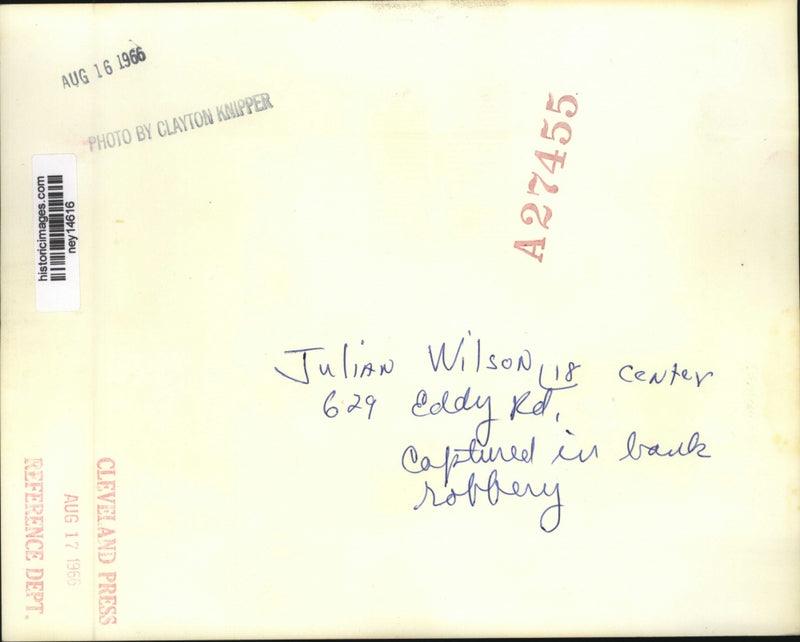 AUG 16 1966
PHOTO BY CLAYTON KNIPPER
A27455
historicimages.com
ney14616
Julian Wilson, 18 center
629 Eddy Rd.
Captured in bank
robbery
CLEVELAND PRESS
AUG 17 1966
REFERENCE DEPT.